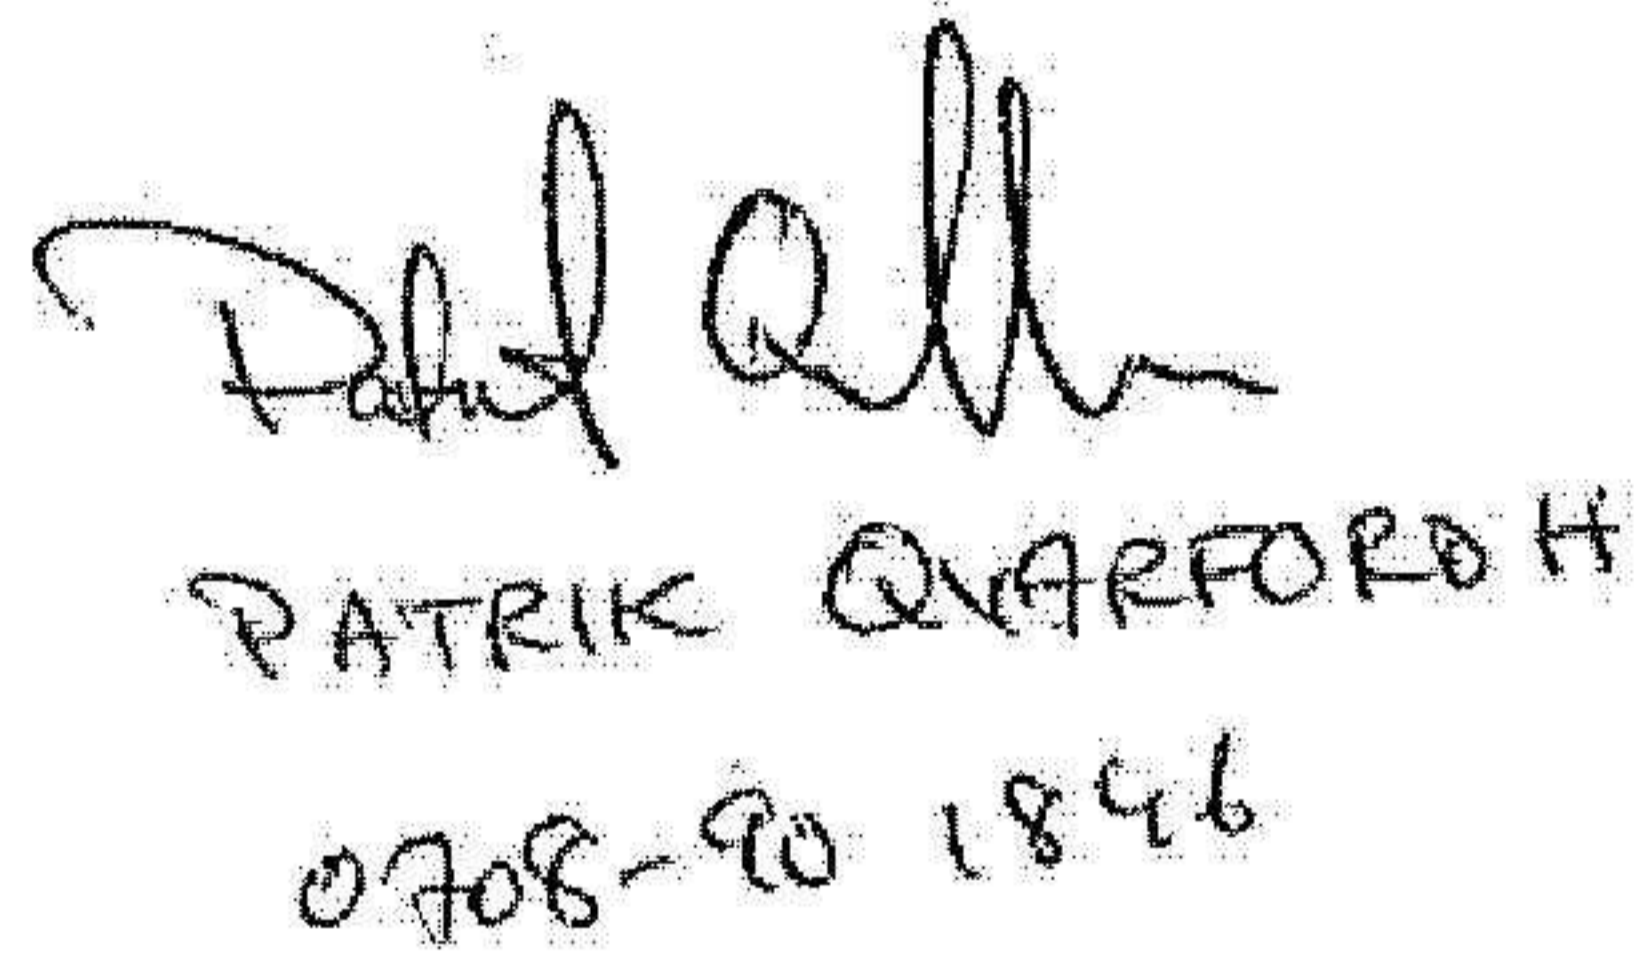 Patrik
PATRIK QVARFORDH
0708-90 1846